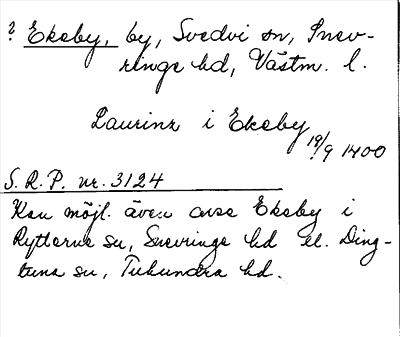 ? Ekeby, by, Svedvi sn, Snev-
ringe hd, Västm. l.
Laurinz i Ekeby
19/9 1400
S. R. P. nr. 3124
Kan möjl. även avse Ekeby i
Rytterne sn, Snevringe hd el. Ding-
tuna sn, Tuhundra hd.